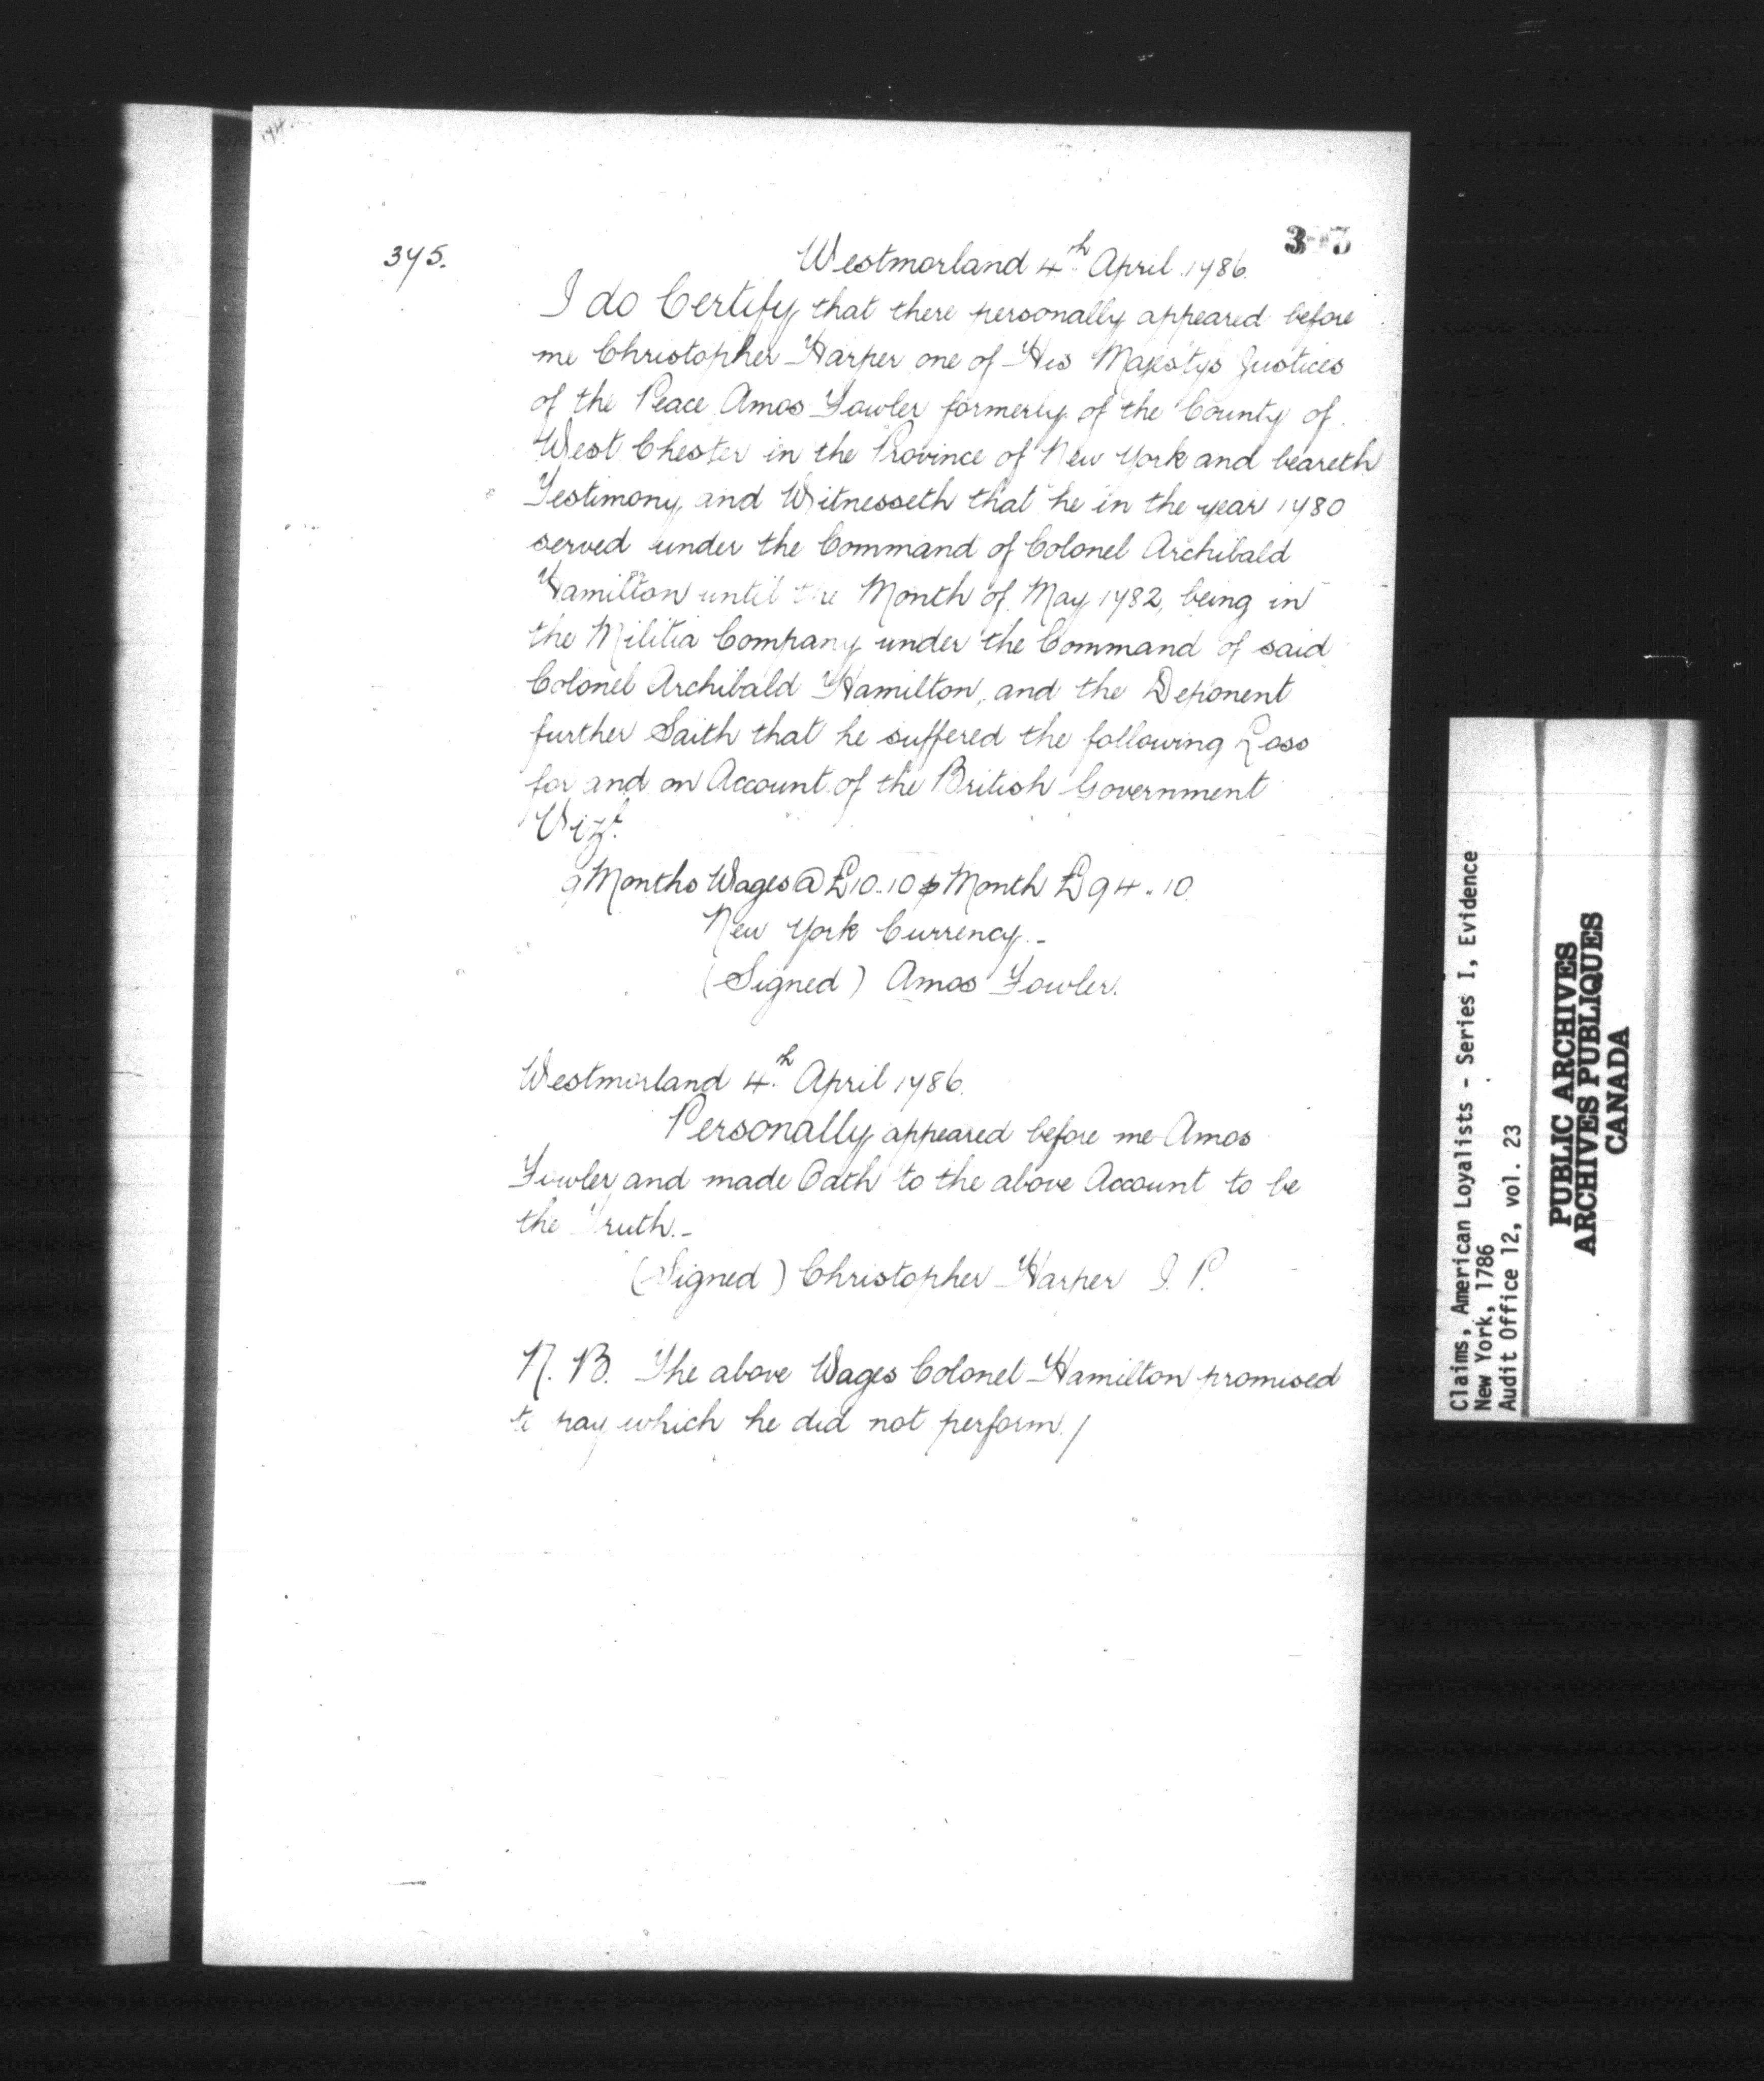 375.
Westmorland 4th April 1786.
I do Certify that there personally appeared before
me Christopher Harper one of His Majestys Justices
of the Peace Amos Fowler formerly of the County of
West Chester in the Province of New York and beareth
Testimony and Witnesseth that he in the year 1780
served under the Command of Colonel Archibald
Hamilton until the Month of May 1782, being in
the Militia Company under the Command of said
Colonel Archibald Hamilton, and the Deponent
further Saith that he suffered the following Loss
for and on Account of the British Government
Vizt.
9 Months Wages @ £10.10 p Month £94.10
New York Currency.-
(Signed) Amos Fowler.
Westmorland 4th April 1786.
Personally appeared before me Amos
Fowler and made Oath to the above Account to be
the Truth.-
(Signed) Christopher Harper J. P.
N. B. The above Wages Colonel Hamilton promised
to pay which he did not perform./
Claims, American Loyalists - Series I, Evidence
New York, 1786
Audit Office 12, vol. 23
PUBLIC ARCHIVES
ARCHIVES PUBLIQUES
CANADA